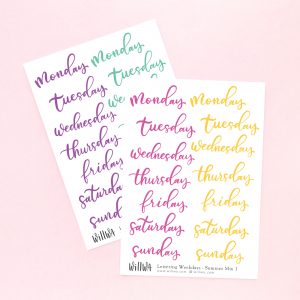 monday monday
tuesday tuesday
wednesday we
thursday
friday
saturday
sunday
willwa
monday monday
tuesday tuesday
wednesday wednesday
thursday thursday
friday friday
saturday saturday
sunday sunday
willwa Lettering Weekdays - Summer Mix 1